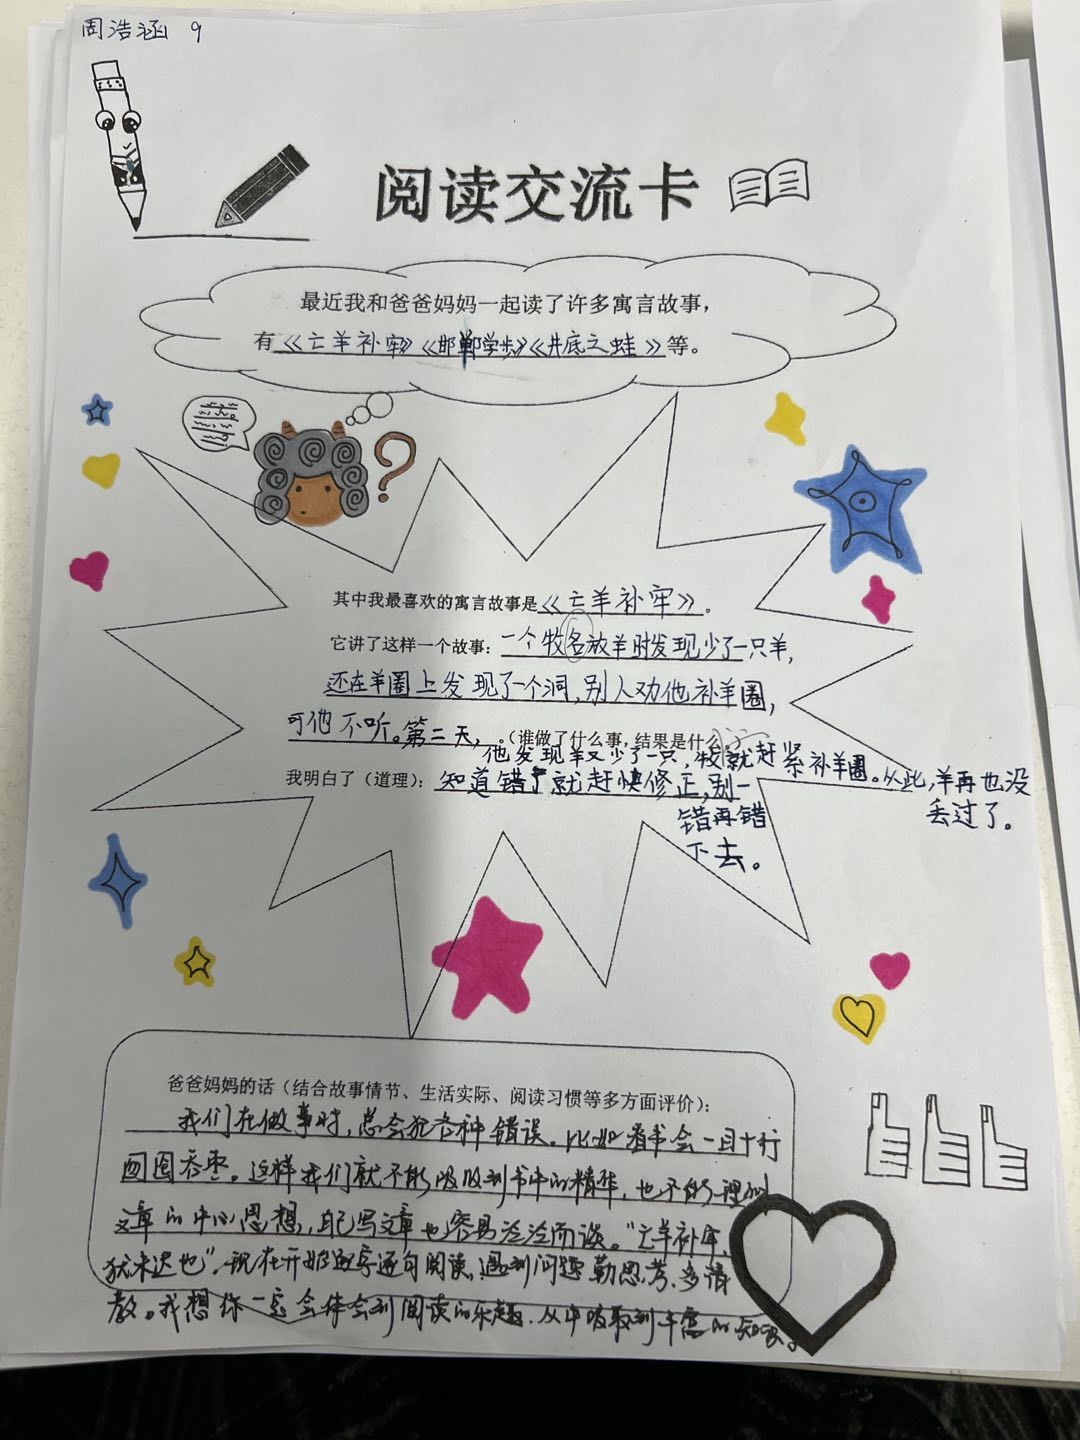 周浩涵 9
阅读交流卡
最近我和爸爸妈妈一起读了许多寓言故事，
有《亡羊补牢》《邯郸学步》《井底之蛙》等。
其中我最喜欢的寓言故事是《亡羊补牢》。
它讲了这样一个故事：一个牧名放羊时发现少了一只羊，
还在羊圈上发现了一个洞，别人劝他补羊圈，
可他不听。第二天，。（谁做了什么事，结果是什么
他发现羊又少了一只，牧就赶紧补羊圈。从此，羊再也没
丢过了。
我明白了（道理）：知道错了就赶快修正，别一
错再错
下去。
爸爸妈妈的话（结合故事情节、生活实际、阅读习惯等多方面评价）：
我们在做事时，总会犯各种错误。比如看书会一目十行
囫囵吞枣。这样我们就不能吸收到书中的精华，也不能理解
文章的中心思想，自己写文章也容易泛泛而谈。“亡羊补牢，
犹未迟也”。现在开始逐字逐句阅读，遇到问题勤思考、多请
教。我想你一定会体会到阅读的乐趣，从中吸取到丰富的知识。